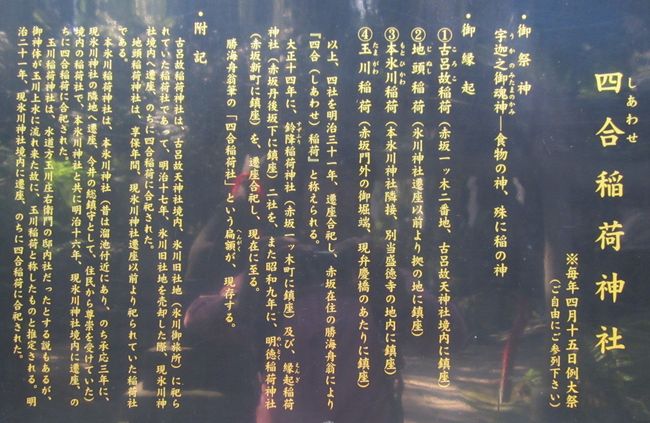 しあわせ
四合稲荷神社
※毎年四月十五日例大祭
(ご自由にご参列下さい)
・御祭神
うかのみたまのかみ
宇迦之御魂神―食物の神、殊に稲の神
・御縁起
ころこ
①古呂故稲荷(赤坂一ッ木二番地、古呂故天神社境内に鎮座)
じぬし
②地頭稲荷(氷川神社遷座以前より拠の地に鎮座)
もとひかわ
③本氷川稲荷(本氷川神社隣接、別当盛徳寺の地内に鎮座)
たまがわ
④玉川稲荷(赤坂門外の御堀端、現弁慶橋のあたりに鎮座)
以上、四社を明治三十一年、遷座合祀し、赤坂在住の勝海舟翁により
『四合(しあわせ)稲荷』と称えられる。
すずふり
えんぎ
大正十四年に、鈴降稲荷神社(赤坂一ッ木町に鎮座)及び、縁起稲荷
神社(赤坂丹後坂下に鎮座)二社を、また昭和九年に、明徳稲荷神社
(赤坂新町に鎮座)を、遷座合祀し、現在に至る。
へんがく
勝海舟翁筆の「四合稲荷社」という扁額が、現存する。
・附記
古呂故稲荷神社は、古呂故天神社境内、氷川旧社地(氷川御旅所)に祀ら
れていた稲荷社であって、明治十七年、氷川旧社地を売却した際、現氷川神
社境内へ遷座、のちに四合稲荷に合祀された。
地頭稲荷神社は、享保年間、現氷川神社遷座以前より祀られていた稲荷社
である。
本氷川稲荷神社は、本氷川神社(昔は溜池付近にあり、のち承応三年に、
現氷川神社の隣地へ遷座、今井の総鎮守として、住民から尊崇を受けていた)
境内の稲荷社で、本氷川神社と共に明治十六年、現氷川神社境内に遷座、の
ちに四合稲荷に合祀された。
玉川稲荷神社は、水道方玉川庄右衛門の邸内社だったとする説もあるが、
御神体が玉川上水に流れ来た故に、玉川稲荷と称したものと推定される。明
治二十一年、現氷川神社境内に遷座、のちに四合稲荷に合祀された。